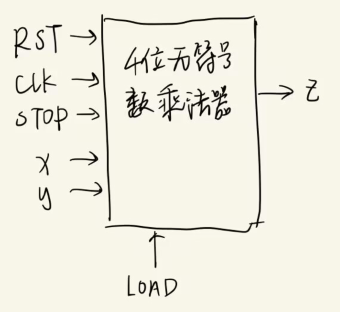 RST
CLK
STOP
x
y
4位无符号
数乘法器
Z
LOAD